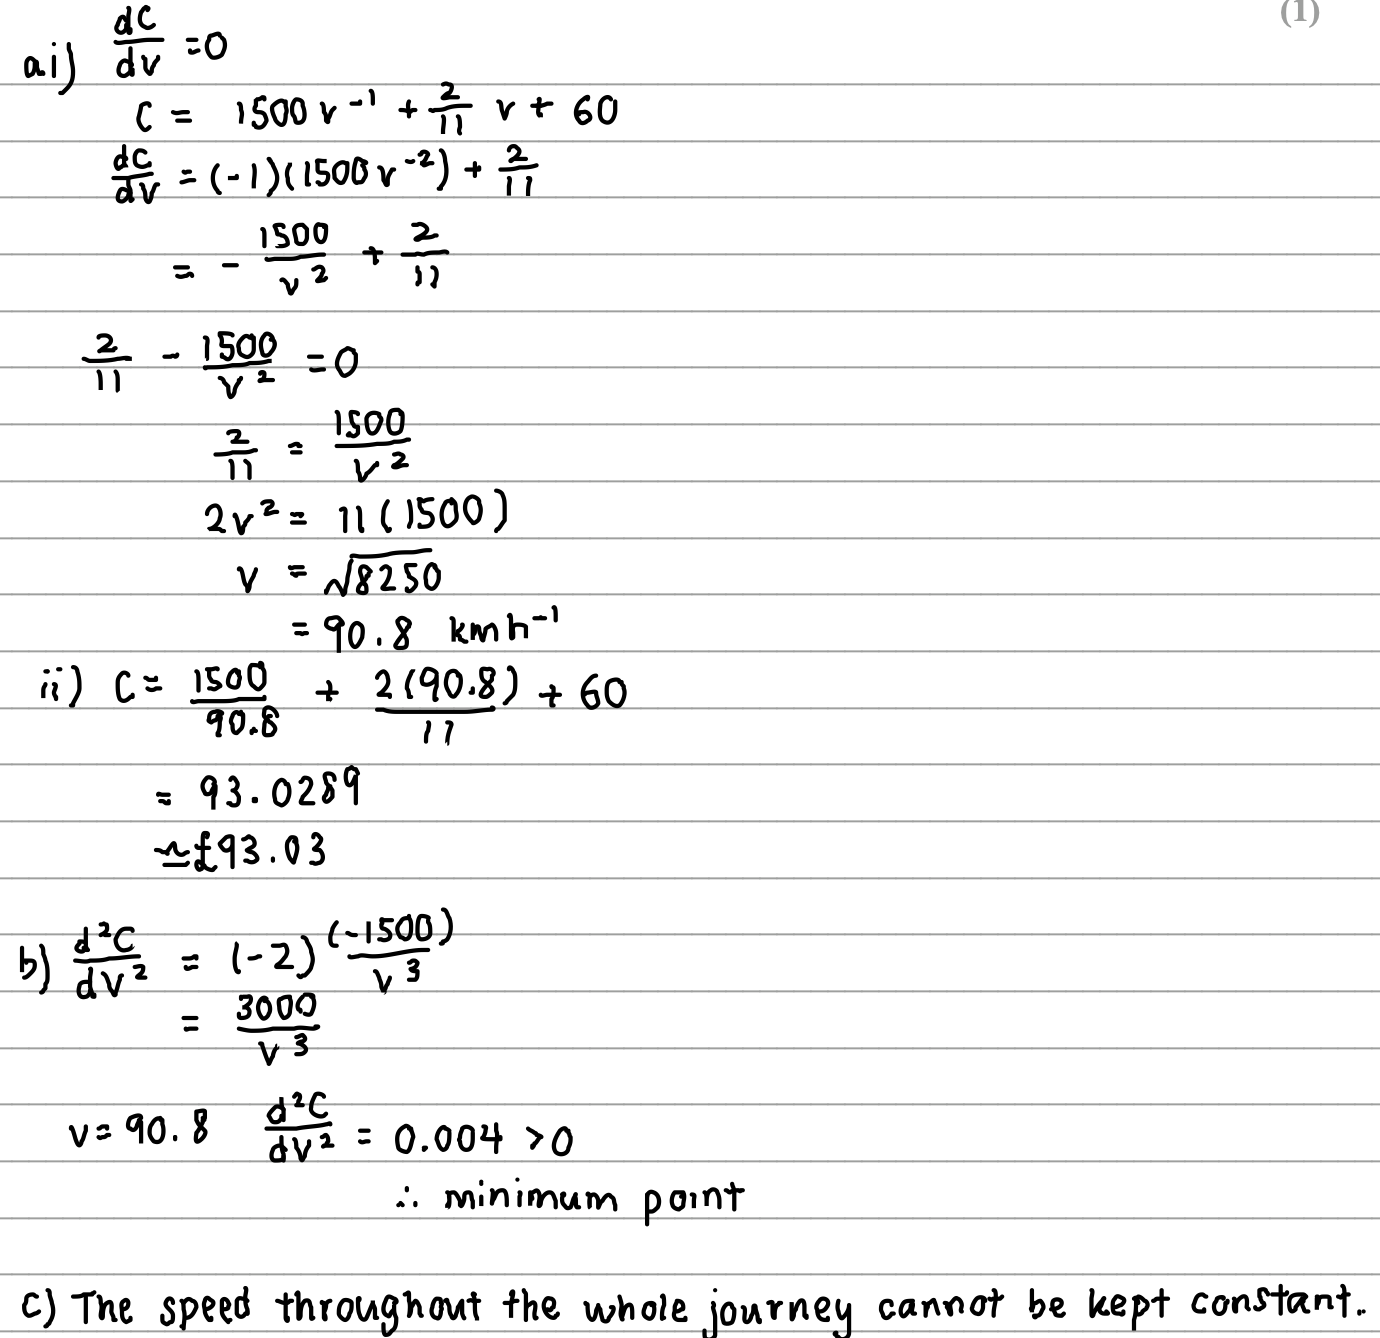 (1)
ai) dC/dv = 0
C = 1500v⁻¹ + 2/11 v + 60
dC/dv = (-1)(1500v⁻²) + 2/11
= - 1500/v² + 2/11
2/11 - 1500/v² = 0
2/11 = 1500/v²
2v² = 11(1500)
v = √8250
= 90.8 kmh⁻¹
ii) C = 1500/90.8 + 2(90.8)/11 + 60
= 93.0289
≃ £93.03
b) d²C/dv² = (-2) (-1500)/v³
= 3000/v³
v = 90.8 d²C/dv² = 0.004 > 0
∴ minimum point
c) The speed throughout the whole journey cannot be kept constant.